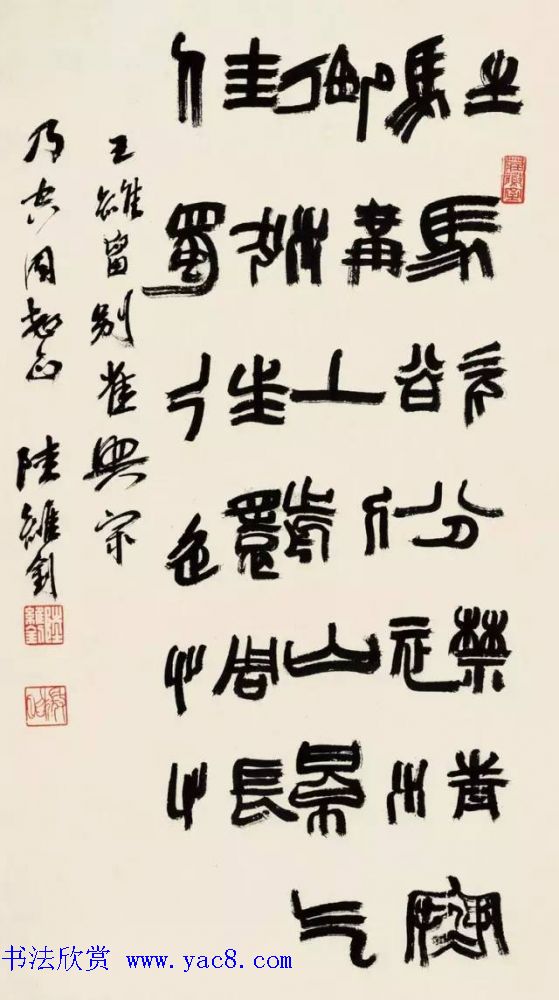 駐馬欲分襟清寒
御溝上前山景气
佳獨往還惆悵
王維留別崔興宗
乃同正 陸維釗
陸維釗
书法欣赏 www.yac8.com